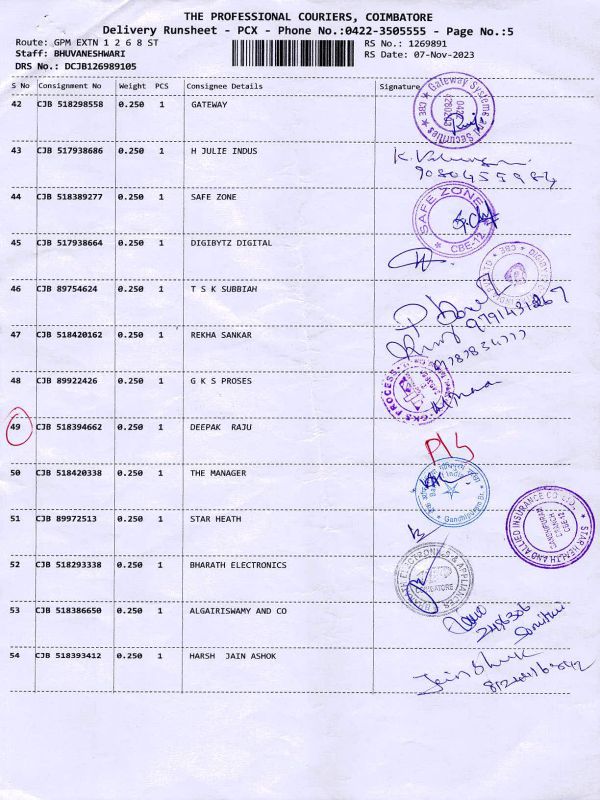 THE PROFESSIONAL COURIERS, COIMBATORE
Delivery Runsheet - PCX - Phone No.:0422-3505555 - Page No.:5
Route: GPM EXTN 1 2 6 8 ST RS No.: 1269891
Staff: BHUVANESHWARI RS Date: 07-Nov-2023
DRS No.: DCJB126989105
S No Consignment No Weight PCS Consignee Details Signature
42 CJB 518298558 0.250 1 GATEWAY
43 CJB 517938686 0.250 1 H JULIE INDUS
9080455984
44 CJB 518389277 0.250 1 SAFE ZONE SAFE ZONE CBE-12
45 CJB 517938664 0.250 1 DIGIBYTZ DIGITAL
46 CJB 89754624 0.250 1 T S K SUBBIAH
47 CJB 518420162 0.250 1 REKHA SANKAR
48 CJB 89922426 0.250 1 G K S PROSES
49 CJB 518394662 0.250 1 DEEPAK RAJU
50 CJB 518420338 0.250 1 THE MANAGER
51 CJB 89972513 0.250 1 STAR HEATH STAR HEALTH AND ALLIED INSURANCE CO
52 CJB 518293338 0.250 1 BHARATH ELECTRONICS
53 CJB 518386650 0.250 1 ALGAIRISWAMY AND CO
54 CJB 518393412 0.250 1 HARSH JAIN ASHOK